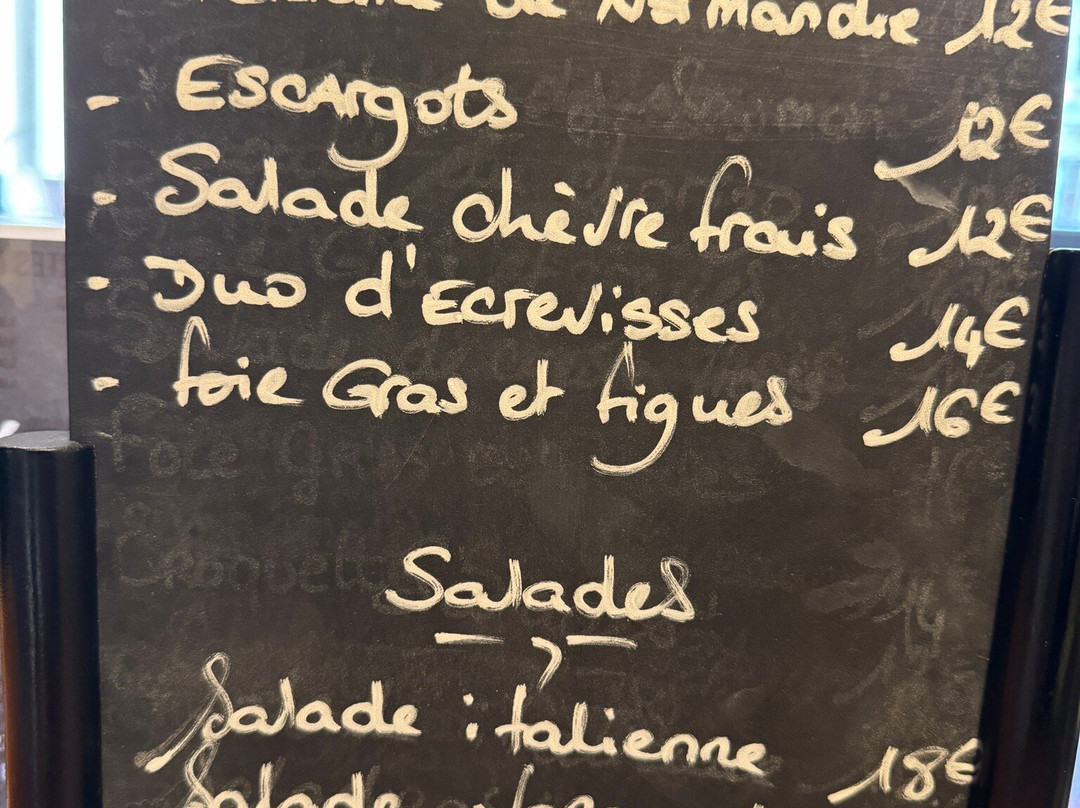 de Normandie 12€
- Escargots 12€
- Salade chèvre frais 12€
- Duo d'Ecrevisses 14€
- foie Gras et figues 16€
Salades
Salade italienne 18€
Salade